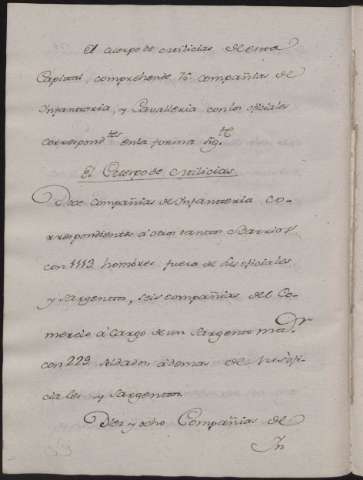 El cuerpo de milicias de esta
Capital comprehende 76 compañias de
Infanteria, y Cavalleria con los oficiales
correspond.tes en la forma sig.te
El Cuerpo de milicias
Doce compañias de Infanteria co-
rrespondientes á otros tantos Barrios
con 1112 hombres fuera de sus oficiales
y sargentos, seis compañias del Co-
mercio á cargo de un sargento ma.or
con 229 soldados ádemas de sus ofi-
ciales y sargentos.
Diez y ocho Compañias de
In